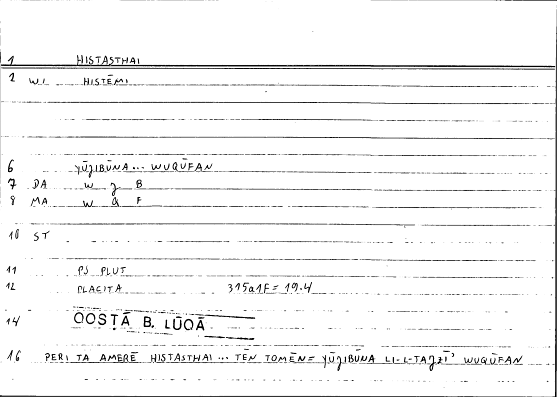 1 HISTASTHAI
2 WI HISTĒMI
6 YŪJIBŪNA... WUQŪFAN
7 DA W J B
8 MA W Q F
10 ST
11 PS PLUT
12 PLACITA 315a1F = 19.4
14 QOSṬĀ B. LŪQĀ
16 PERI TA AMERĒ HISTASTHAI ... TĒN TOMĒN = YŪJIBŪNA LI-L-TAJZĪ' WUQŪFAN